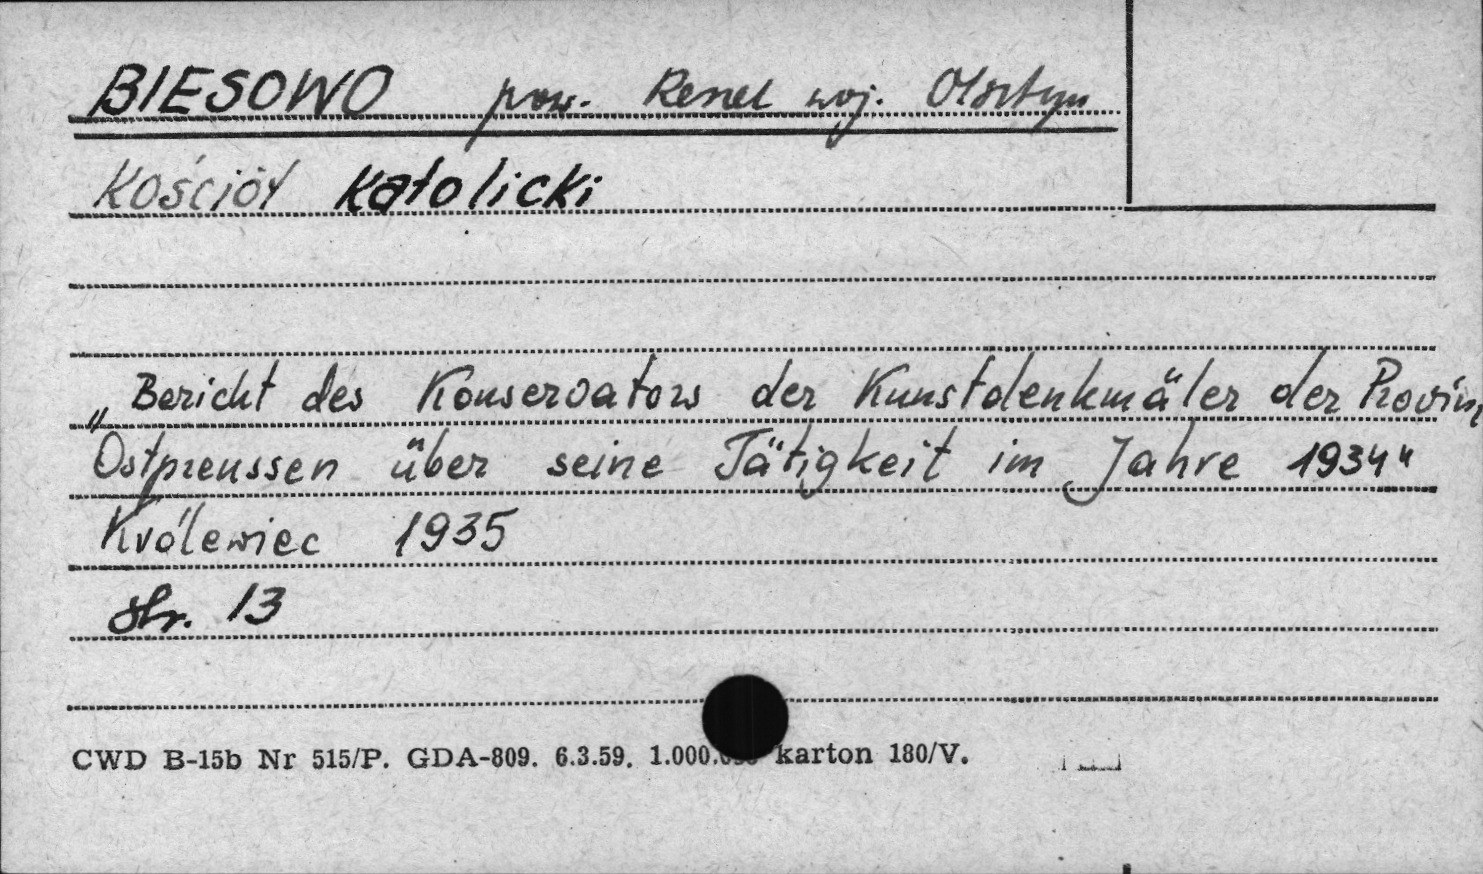 BIESOWO pow. Reszel woj. Olsztyn
Kościół Katolicki
„Bericht des Konservators der Kunstdenkmäler der Provinz
Ostpreussen über seine Tätigkeit im Jahre 1934"
Królewiec 1935
str. 13
CWD B-15b Nr 515/P. GDA-809. 6.3.59. 1.000.000 karton 180/V.